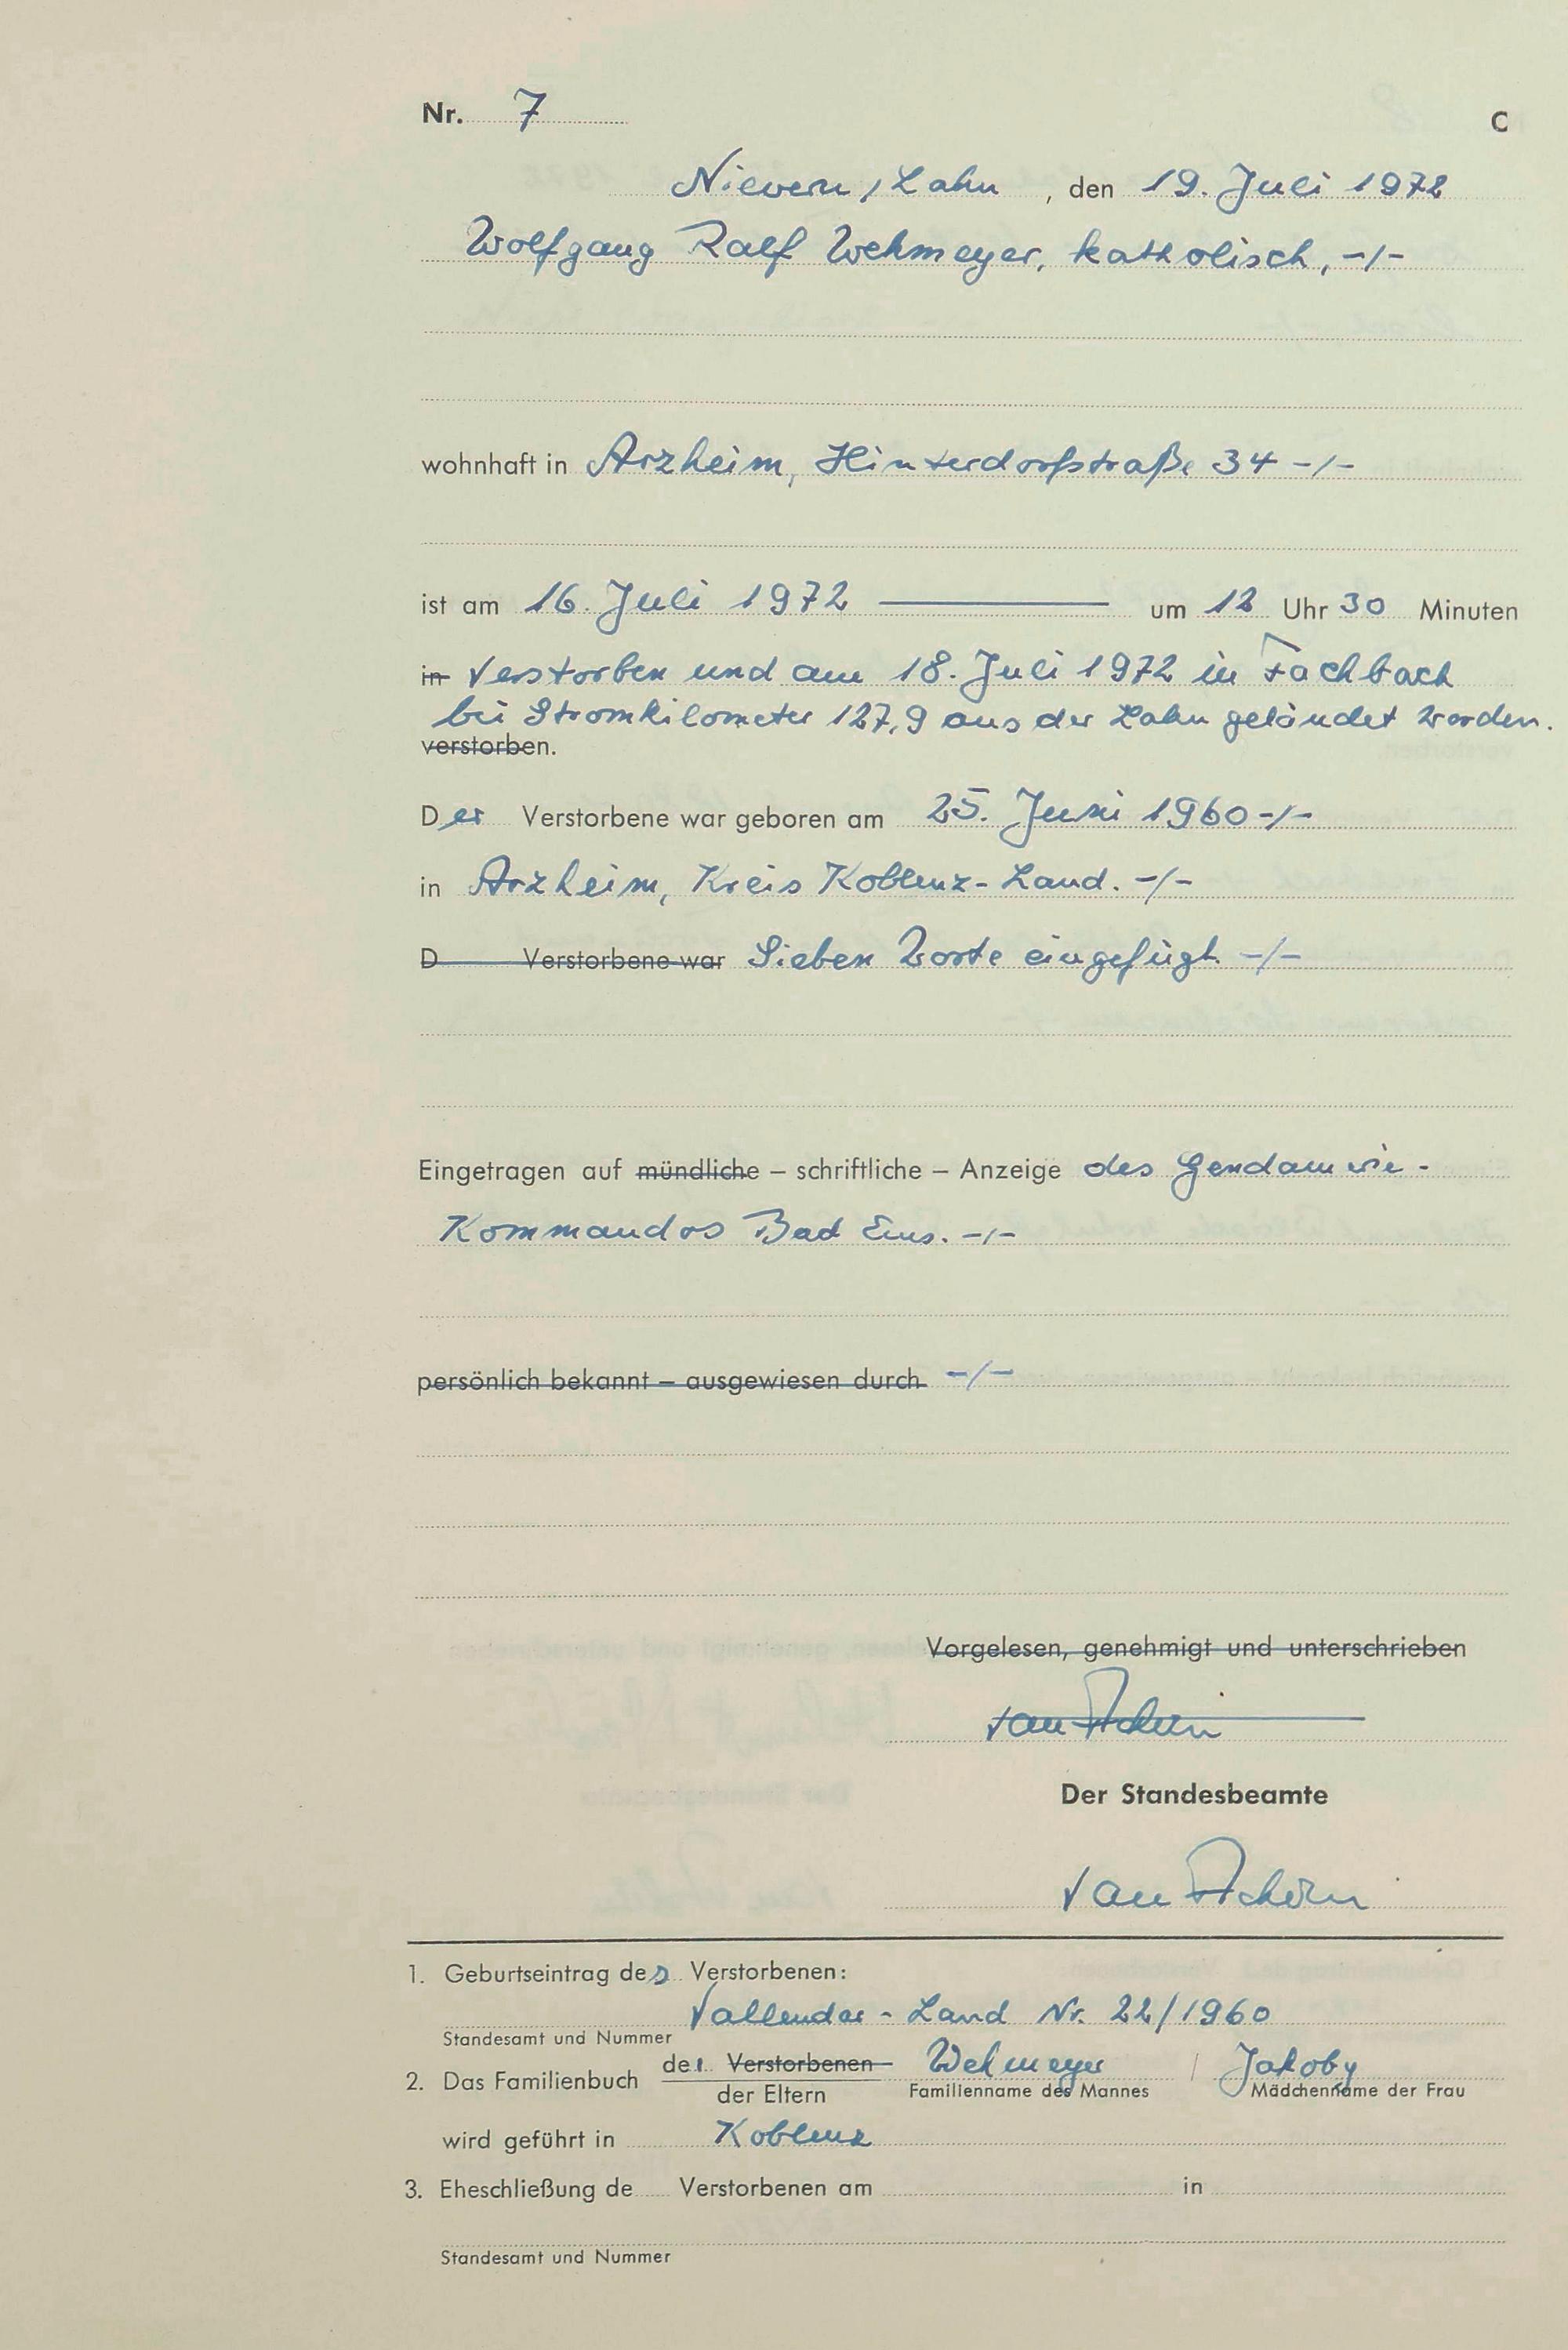 Nr. 7 C
Nievern/Lahn, den 19. Juli 1972
Wolfgang Ralf Wehmeyer, katholisch, -/-
wohnhaft in Arzheim, Hinterdorfstraße 34 -/-
ist am 16. Juli 1972 um 12 Uhr 30 Minuten
in verstorben und am 18. Juli 1972 in Fachbach
bei Stromkilometer 127,9 aus der Lahn geländet worden.
verstorben.
Der Verstorbene war geboren am 25. Juni 1960 -/-
in Arzheim, Kreis Koblenz-Land. -/-
D Verstorbene war Sieben Worte eingefügt. -/-
Eingetragen auf mündliche – schriftliche – Anzeige des Gendamerie-
Kommandos Bad Ems. -/-
persönlich bekannt – ausgewiesen durch -/-
Vorgelesen, genehmigt und unterschrieben
van
Der Standesbeamte
van
1. Geburtseintrag des Verstorbenen:
Vallendar - Land Nr. 22/1960
Standesamt und Nummer
2. Das Familienbuch der Verstorbenen Wehmeyer / Jakoby
der Eltern Familienname des Mannes Mädchenname der Frau
wird geführt in Koblenz
3. Eheschließung de Verstorbenen am in
Standesamt und Nummer